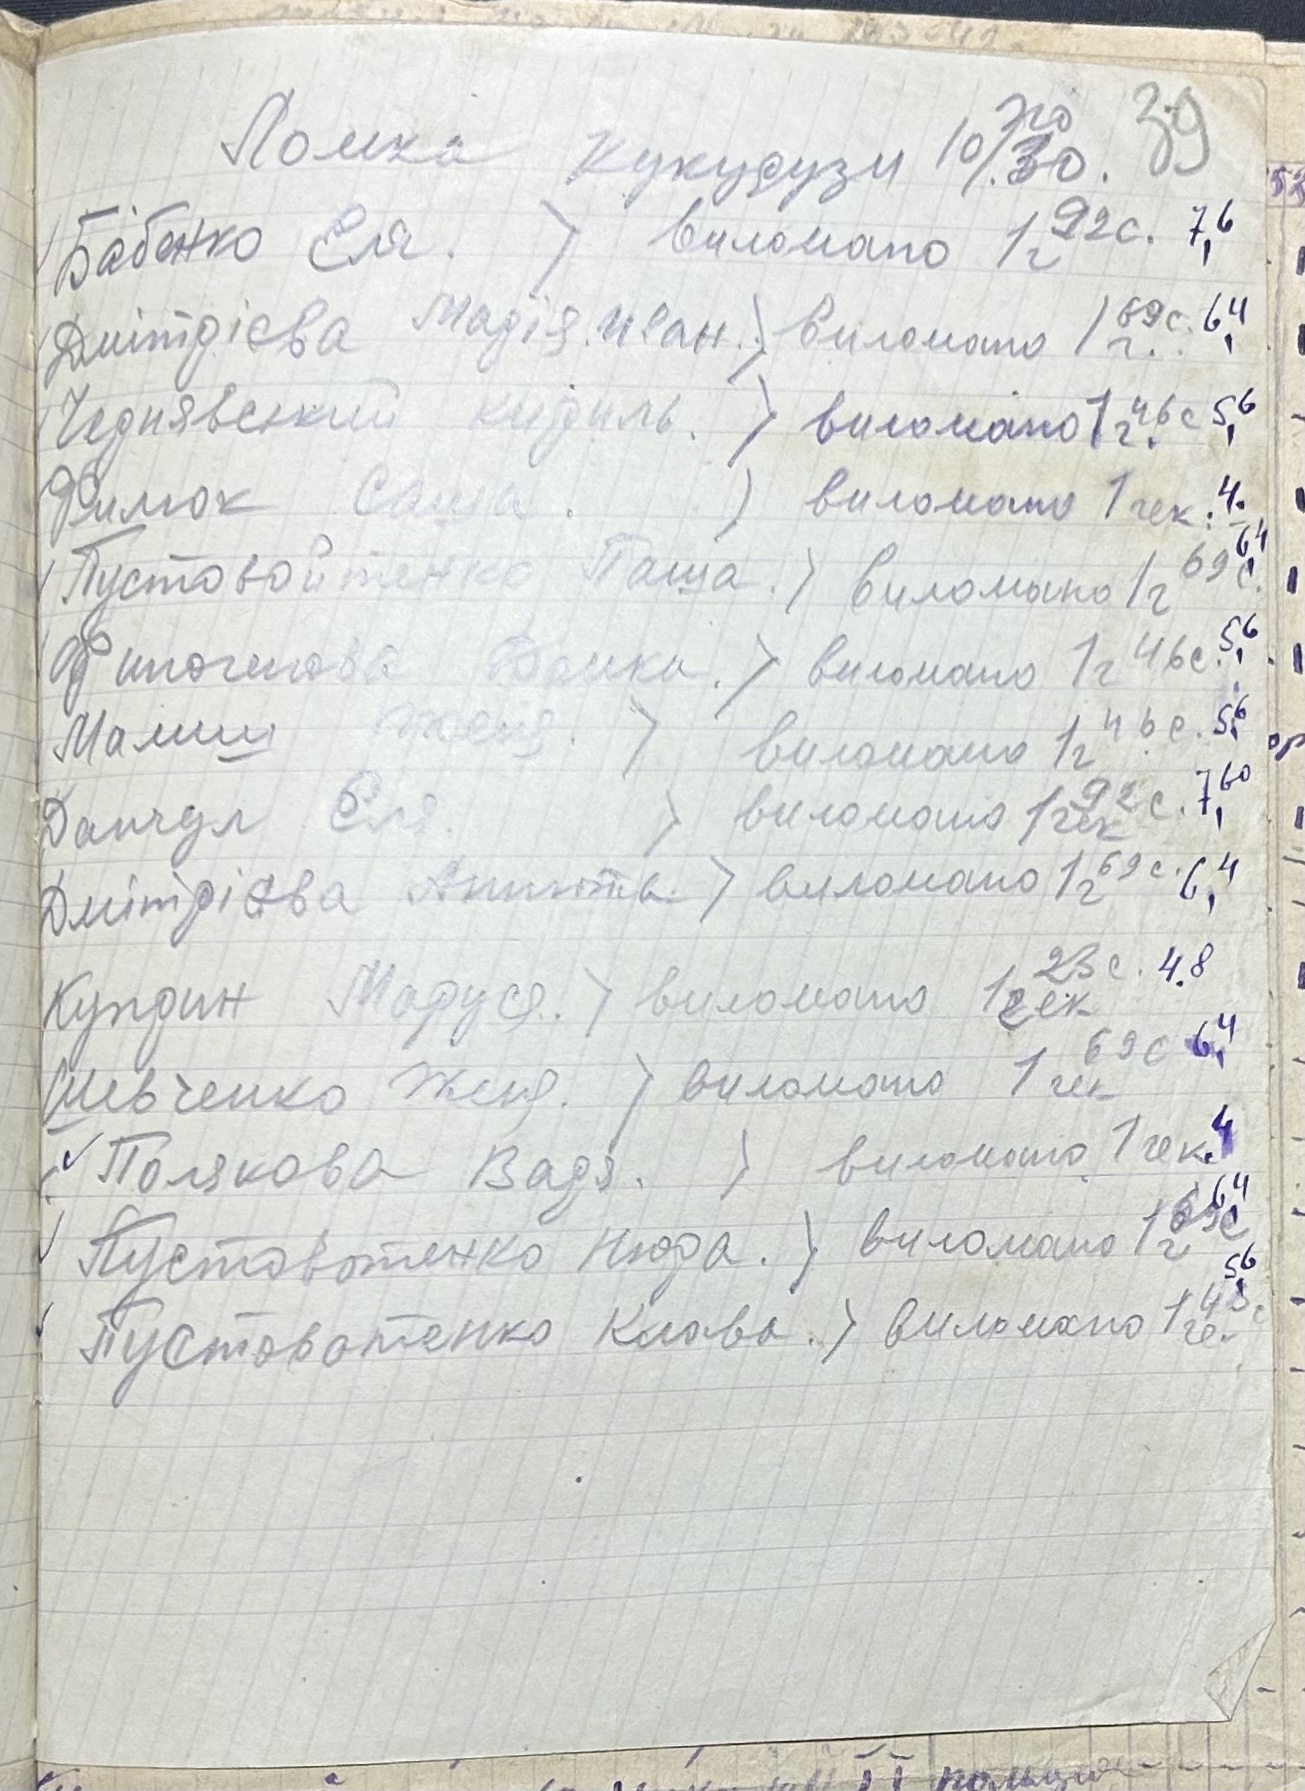 Ломка кукурузи 10/30. 39
Бабенко Єля. ) виломано 1г 92с. 7,6
Дмітрієва Марія Иван. ) виломано 1г 69с. 6,4
Чернявський ) виломано 1г 46с 5,6
Филюк Саша. ) виломано 1 гек. 4.
Пустовойтенко Паша. ) виломано 1г 69с. 6,4
) виломано 1г 46с. 5,6
Мамиш Женя. ) виломано 1г 46с. 5,6
Єля. ) виломано 1 гек 92с. 7,60
Дмітрієва ) виломано 1г 69с. 6,4
Куприн Маруся. ) виломано 1 гек 23с. 4.8
Шевченко Женя. ) виломано 1 гек 69с 6,4
Полякова Варя. ) виломано 1 гек. 4
Пустовотенко Нюра. ) виломано 1г 69с 6,4
Пустовотенко Клава. ) виломано 1 ге 5,6